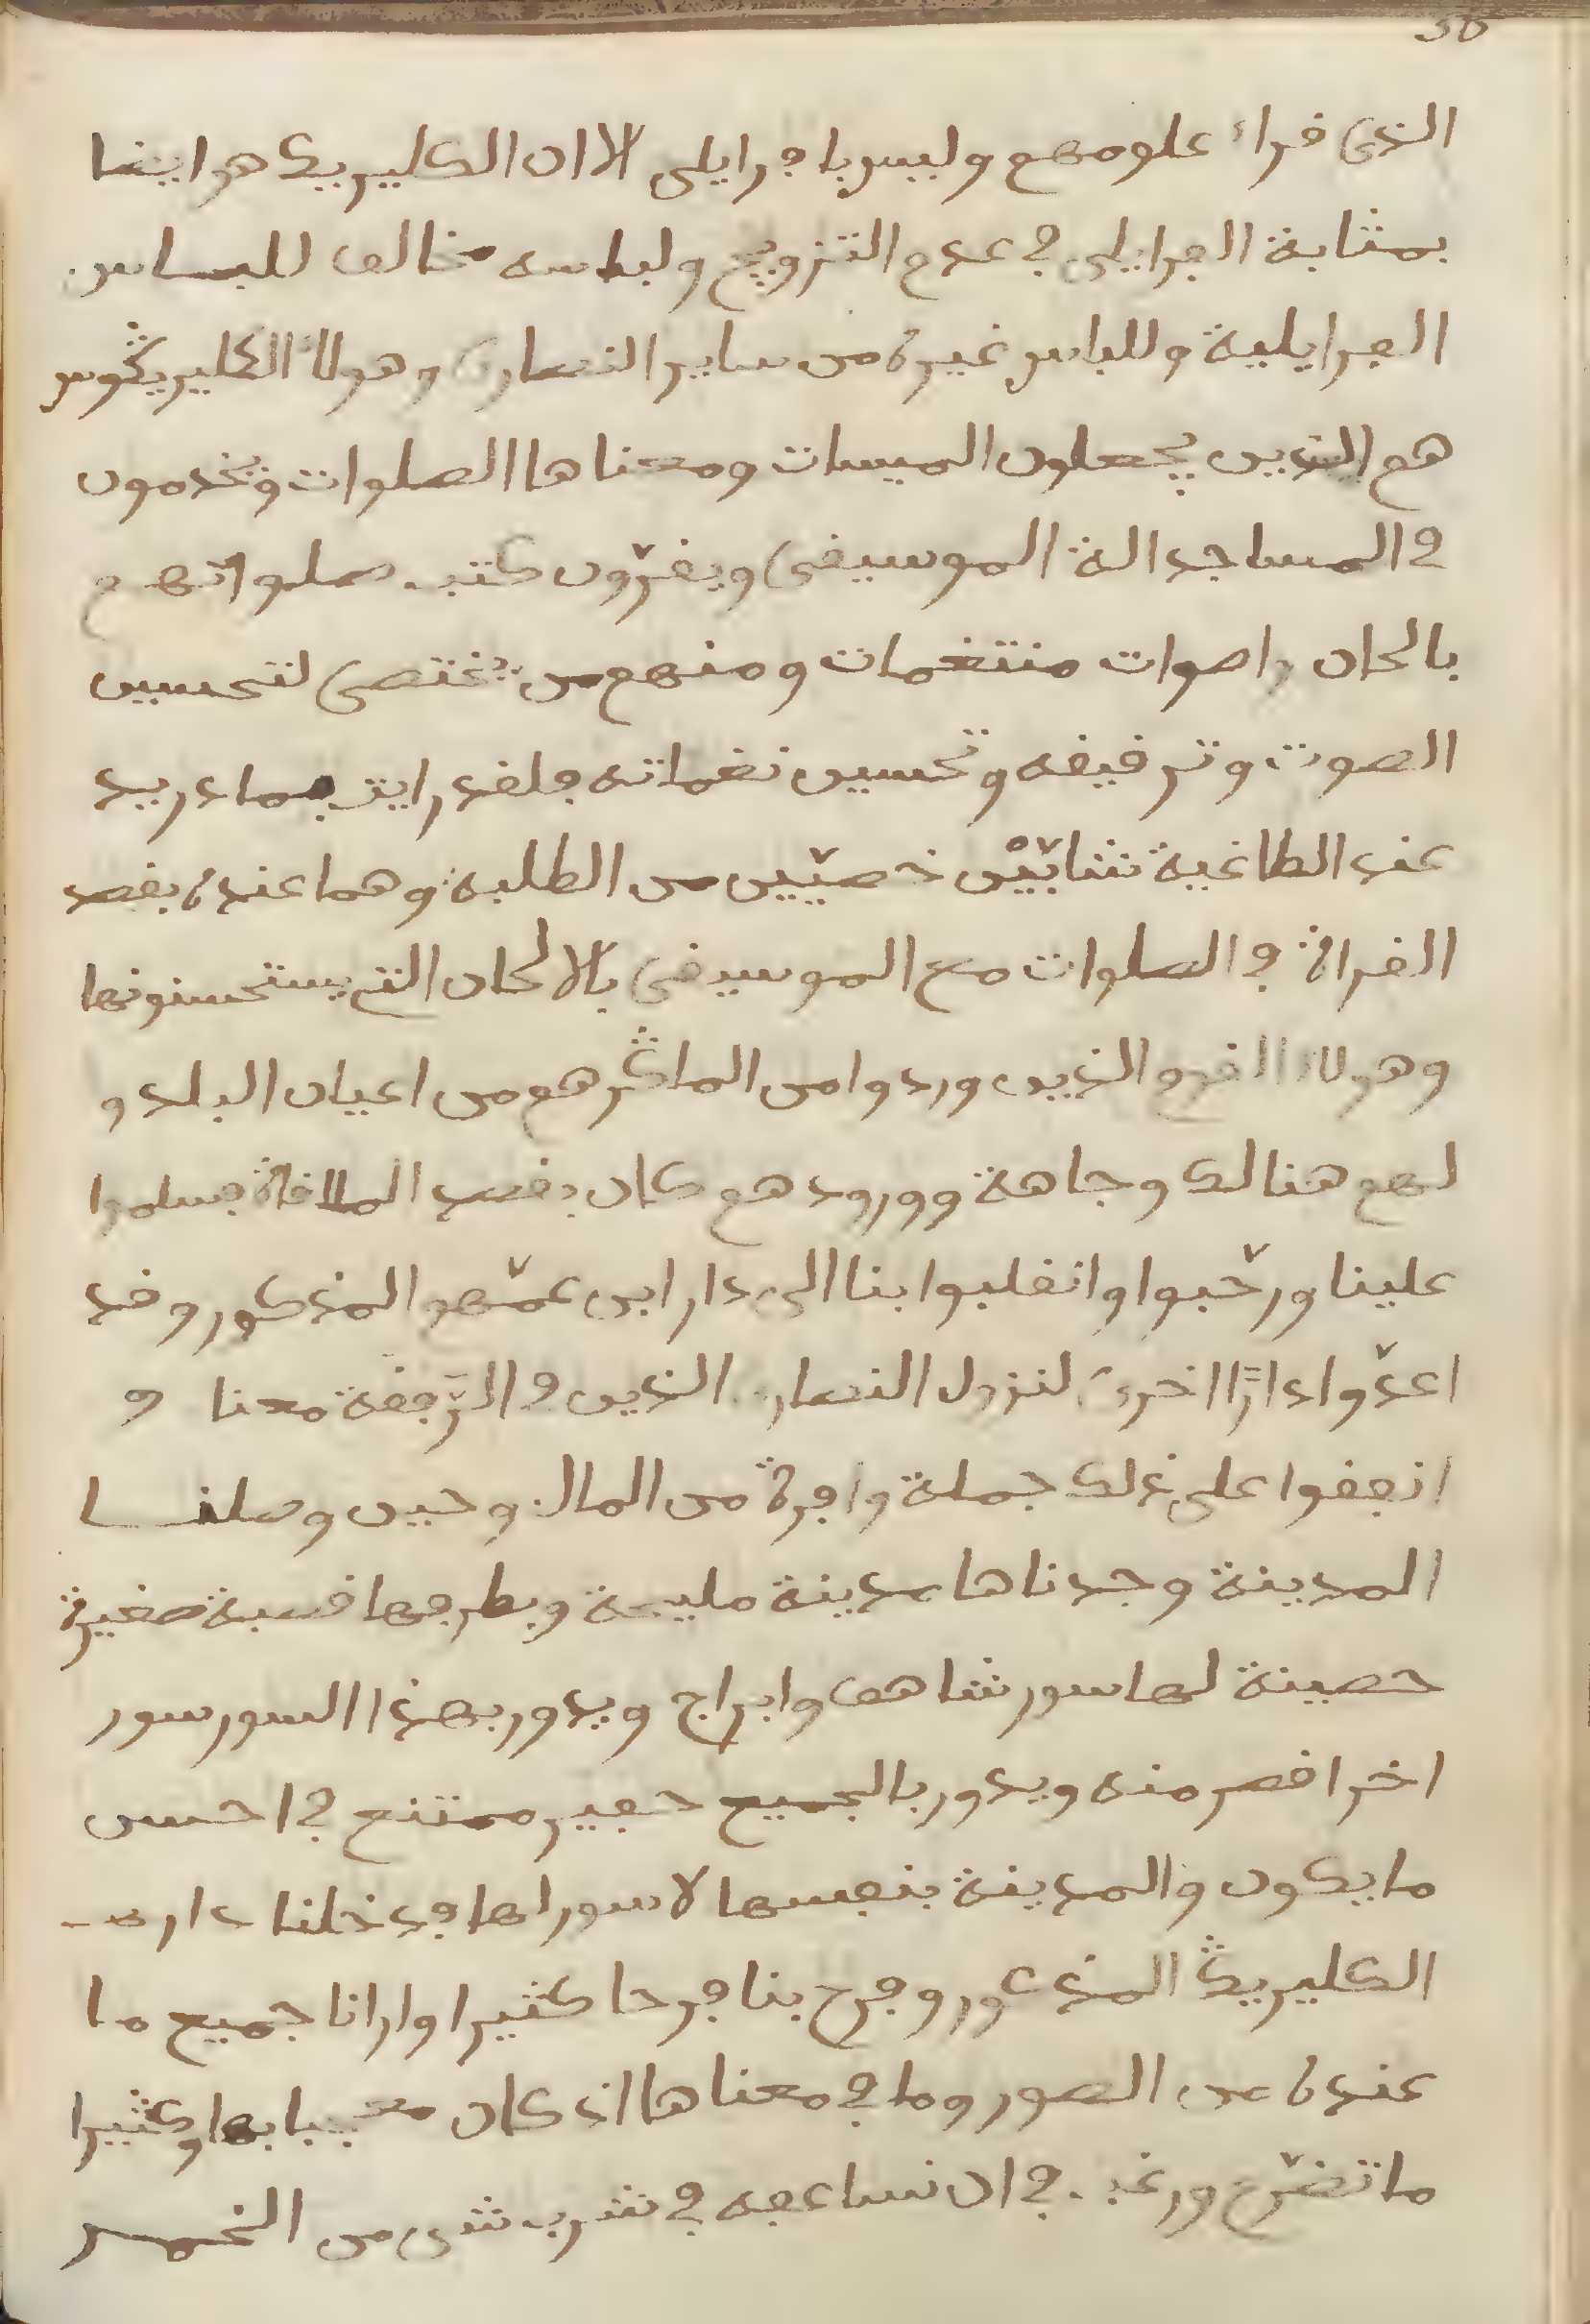 50
الذي قراء علومهم وليس بافرايلي الا ان الكليريك هو ايضا
بمثابة الفرايلي في عدم التزويج ولباسه مخالف للباس
الفرايلية وللباس غيره من ساير النصارى وهولاء الكليريكوس
هم الذين يجعلون الميسات ومعناها الصلوات ويخدمون
في المساجد الة الموسيقى ويقرّون كتب صلواتهم
بالحان واصوات منتغمات ومنهم من يختصى لتحسين
الصوت وترقيقه وتحسين نغماته فلقد رايت بمادريد
عند الطاغية شابّيْن خصيّين من الطلبة وهما عنده بقصد
القراة في الصلوات مع الموسيقى بالالحان التي يستحسنونها
وهولاء القوم الذين وردوا من الماڭر هم من اعيان البلد و
لهم هنالك وجاهة وورودهم كان بقصد الملاقاة فسلموا
علينا ورحّبوا وانقلبوا بنا الى دار ابن عمّهم المذكور وقد
اعدّوا دارًا اخرى لنزول النصارى الذين في الرّفقة معنا و
انفقوا على ذلك جملة وافرة من المال وحين وصلنا
المدينة وجدناها مدينة مليحة وبطرفها قصبة صغيرة
حصينة لها سور شاهق وابراج ويدور بهذا السور سور
اخر اقصر منه ويدور بالجميع حفير ممتنع في احسن
ما يكون والمدينة بنفسها لا سور لها فدخلنا دار
الكليريك المذكور وفرح بنا فرحا كثيرا وارانا جميع ما
عنده من الصور وما في معناها اذ كان معجبا بها وكثيرا
ما تضرّع ورغب في ان نساعفه في شرب شي من الخمر